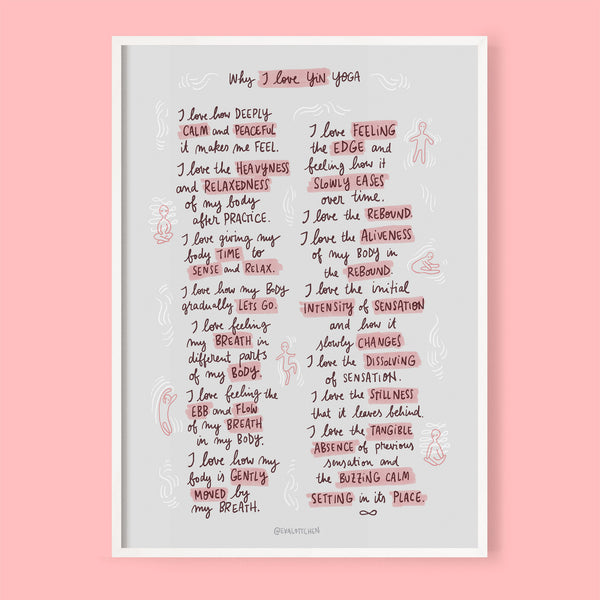 Why I love YIN YOGA
I love how DEEPLY
CALM and PEACEFUL
it makes me FEEL.
I love the HEAVYNESS
and RELAXEDNESS
of my body
after PRACTICE.
I love giving my
body TIME to
SENSE and RELAX.
I love how my BODY
gradually LETS GO.
I love feeling
my BREATH in
different parts
of my BODY.
I love feeling the
EBB and FLOW
of my BREATH
in my BODY.
I love how my
body is GENTLY
MOVED by
my BREATH.
I love FEELING
the EDGE and
feeling how it
SLOWLY EASES
over time.
I love the REBOUND.
I love the ALIVENESS
of my BODY in
the REBOUND.
I love the initial
INTENSITY of SENSATION
and how it
slowly CHANGES
I love the DISSOLVING
of SENSATION.
I love the STILLNESS
that it leaves behind.
I love the TANGIBLE
ABSENCE of previous
sensation and
the BUZZING CALM
SETTING in its PLACE.
@EVALOTTCHEN